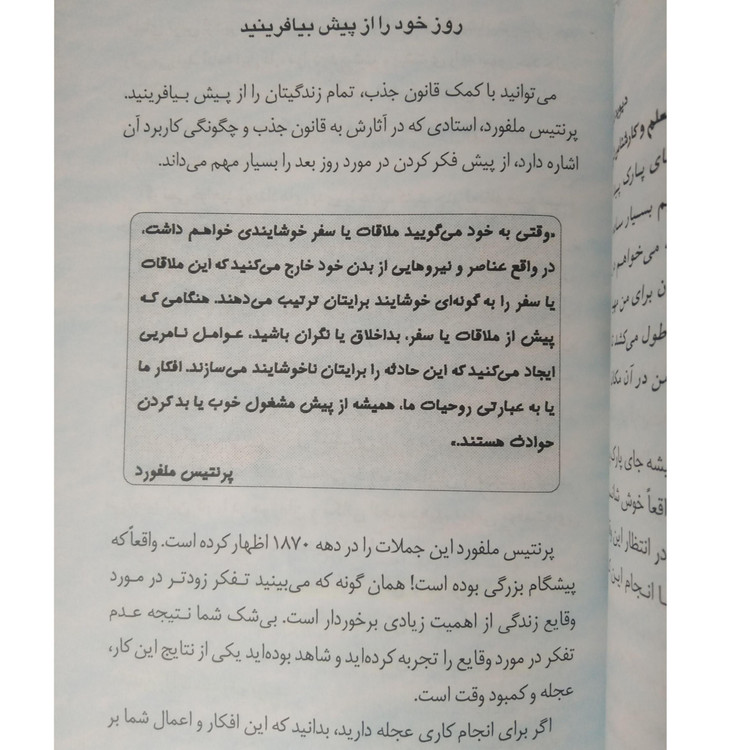 روز خود را از پیش بیافرینید
می‌توانید با کمک قانون جذب، تمام زندگیتان را از پیش بیافرینید.
پرنتیس ملفورد، استادی که در آثارش به قانون جذب و چگونگی کاربرد آن
اشاره دارد، از پیش فکر کردن در مورد روز بعد را بسیار مهم می‌داند.
«وقتی به خود می‌گویید ملاقات یا سفر خوشایندی خواهم داشت،
در واقع عناصر و نیروهایی از بدن خود خارج می‌کنید که این ملاقات
یا سفر را به گونه‌ای خوشایند برایتان ترتیب می‌دهند. هنگامی که
پیش از ملاقات یا سفر، بداخلاق یا نگران باشید، عوامل نامریی
ایجاد می‌کنید که این حادثه را برایتان ناخوشایند می‌سازند. افکار ما
یا به عبارتی روحیات ما، همیشه از پیش مشغول خوب یا بد کردن
حوادث هستند.»
پرنتیس ملفورد
پرنتیس ملفورد این جملات را در دهه ۱۸۷۰ اظهار کرده است. واقعاً که
پیشگام بزرگی بوده است! همان گونه که می‌بینید تفکر زودتر در مورد
وقایع زندگی از اهمیت زیادی برخوردار است. بی‌شک شما نتیجه عدم
تفکر در مورد وقایع را تجربه کرده‌اید و شاهد بوده‌اید یکی از نتایج این کار،
عجله و کمبود وقت است.
اگر برای انجام کاری عجله دارید، بدانید که این افکار و اعمال شما بر
علم و
ای پارک
م بسیار
می‌خواهم
ن برای من
طول می‌کشد
من در آن
یشه جای پارک
اقعاً خوش
در انتظار این
انجام این